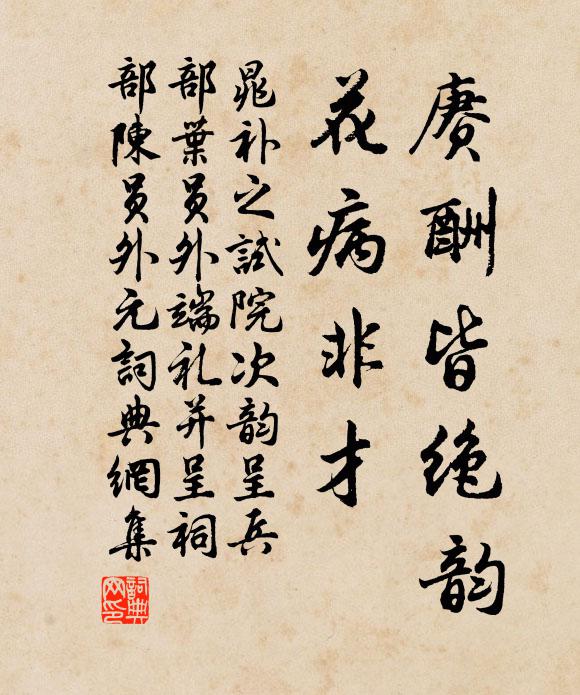 赓酬皆绝韵
花病非才
晁补之試院次韵呈兵
部葉員外端礼并呈祠
部陳員外元詞典網集
詞典网印